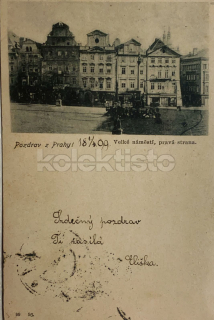 Pozdrav z Prahy! 18 4/4 09. Velké náměstí, pravá strana.
kolektisto
Srdečný pozdrav
Ti zasílá
Eliška.